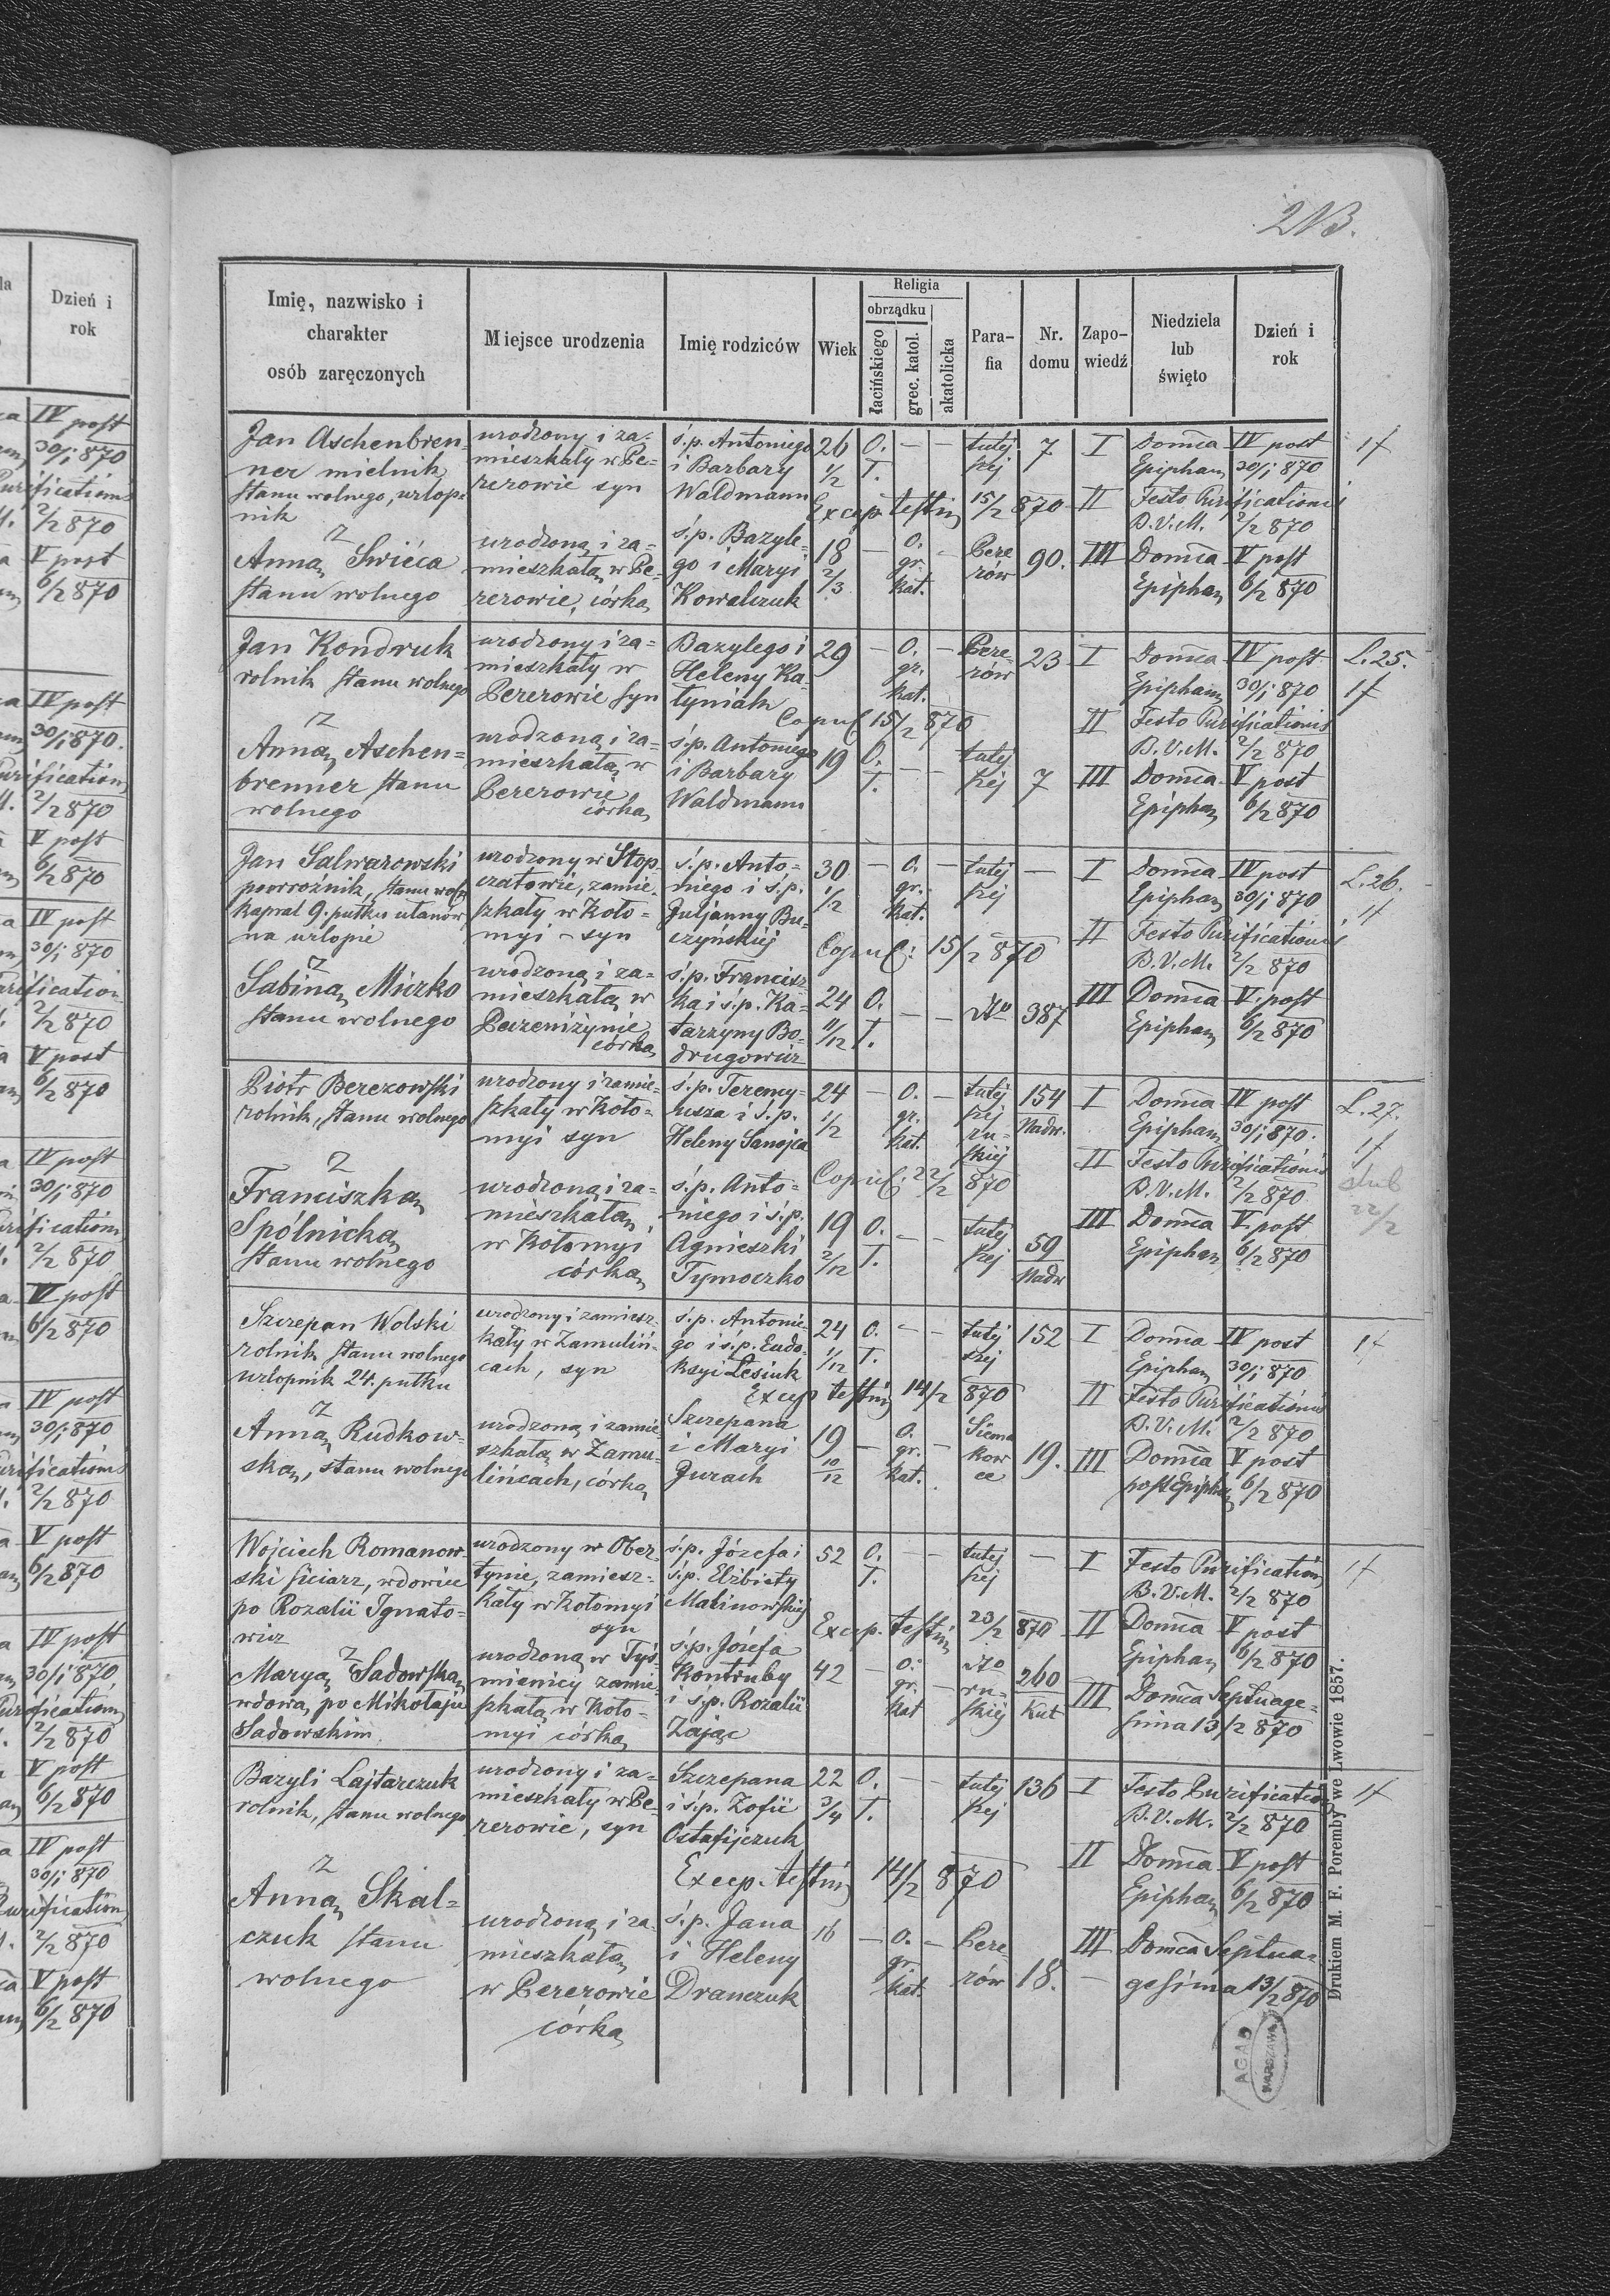 213.
Imię, nazwisko i charakter osób zaręczonych
Miejsce urodzenia
Imię rodziców
Wiek
Religia
obrządku
łacińskiego
grec. katol.
akatolicka
Para-fia
Nr. domu
Zapo-wiedź
Niedziela lub święto
Dzień i rok
Jan Aschenbren-
ner mielnik
stanu wolnego, urlop
nik
urodzony i za-
mieszkały w Pe-
rerowie syn
ś.p. Antoniego
i Barbary
Waldmann
26 1/2
O. Ł.
tutej
szej
7
I Domca IV post
Epiphan 30/1 870
Excep testin 15/2 870
II Festo Purificationis
B.V.M. 2/2 870
z
Anną Swiéca
stanu wolnego
urodzoną i za-
mieszkałą w Pe-
rerowie, córką
ś.p. Bazyle-
go i Maryi
Kowalczuk
18 2/3
O. gr. kat.
Pere
rów
90.
III Domca V post
Epiphan 6/2 870
1f
Jan Kondruk
rolnik stanu wolnego
urodzony i za-
mieszkały w
Pererowie syn
Bazylego i
Heleny Ka-
tyniak
29
O. gr. kat.
Pere
rów
23
I Domca IV post
Epiphan 30/1 870
L. 25.
1f
Copul 15/2 870
II Festo Purificationis
B.V.M. 2/2 870
z
Anną Aschen-
brenner stanu
wolnego
urodzoną i za-
mieszkałą w
Pererowie
córką
ś.p. Antoniego
i Barbary
Waldmann
19
O. Ł.
tutej
szej
7
III Domca V post
Epiphan 6/2 870
Jan Salwarowski
powroźnik, stanu woln
kapral 9. pułku ułanów
na urlopie
urodzony w Stop-
czatowie, zamie-
szkały w Koło-
myi - syn
ś.p. Anto-
niego i ś.p.
Juljanny Bu-
czyńskiej
30 1/2
O. gr. kat.
tutej
szej
I Domca IV post
Epiphan 30/1 870
L. 26.
1f
Copul: 15/2 870
II Festo Purificationis
B.V.M. 2/2 870
z
Sabiną Miczko
stanu wolnego
urodzoną i za-
mieszkałą w
córką
ś.p. Francisz
ka i ś.p. Ka-
tarzyny Bo-
drugowicz
24 11/12
O. Ł.
dto
387
III Domca V post
Epiphan 6/2 870
Piotr Berezowski
rolnik, stanu wolnego
urodzony i zamie-
szkały w Koło-
myi syn
ś.p. Terency-
usza i ś.p.
Heleny Sanojca
24 1/2
O. gr. kat.
tutej
szej
ru-
skiej
154
Nadw.
I Domca IV post
Epiphan 30/1 870.
L. 27.
1f
ślub
22/2
Copul: 22/2 870
II Festo Purificationis
B.V.M. 2/2 870
z
Franciszką
Spólnicką
stanu wolnego
urodzoną i za-
mieszkałą
w Kołomyi
córką
ś.p. Anto-
niego i ś.p.
Agnieszki
Tymoczko
19 2/12
O. Ł.
tutej
szej
59
Nadw
III Domca V post
Epiphan 6/2 870
Szczepan Wolski
rolnik stanu wolnego
urlopnik 24. pułku
urodzony i zamiesz-
kały w Zamuliń-
cach, syn
ś.p. Antonie
go i ś.p. Eudo-
ksyi Lesiuk
24 1/12
O. Ł.
tutej
szej
152
I Domca IV post
Epiphan 30/1 870
1f
Excep testin 14/2 870
II Festo Purificationis
B.V.M. 2/2 870
z
Anną Rudkow-
ską, stanu wolnego
urodzoną i zamie-
szkałą w Zamu-
lińcach, córką
Szczepana
i Maryi
Jurach
19 10/12
O. gr. kat.
Siema
kow
ce
19.
III Domca V post
post Epiphan 6/2 870
Wojciech Romanow-
ski siciarz, wdowiec
po Rozalii Ignato-
wicz
urodzony w Ober-
tynie, zamiesz-
kały w Kołomyi
syn
ś.p. Józefa i
ś.p. Elżbiety
Malinowskiej
52
O. Ł.
tutej
szej
I Festo Purification
B.V.M. 2/2 870
1f
Excep. testin 23/2 870
II Domca V post
Epiphan 6/2 870
z
Maryą Sadowską
wdową po Mikołaju
Sadowskim
urodzoną w Tyś-
mienicy zamie-
szkałą w Koło-
myi córką
ś.p. Józefa
Kontruby
i ś.p. Rozalii
Zając
42
O. gr. kat
dto
ru-
skiej
260
Kut
III Domca Septuage-
sima 13/2 870
Bazyli Lajtarczuk
rolnik, stanu wolnego
urodzony i za-
mieszkały w Pe-
rerowie, syn
Szczepana
i ś.p. Zofii
Ostafijczuk
22 3/4
O. Ł.
tutej
szej
136
I Festo Purification
B.V.M. 2/2 870
1f
Excep. testin 14/2 870
II Domca V post
Epiphan 6/2 870
z
Anną Skal-
czuk stanu
wolnego
urodzoną i za-
mieszkałą
w Pererowie
córką
ś.p. Jana
i Heleny
Dranczuk
16
O. gr. kat.
Pere-
rów
18.
III Domca Septua-
gesima 13/2 870
Drukiem M. F. Poremby we Lwowie 1857.
AGAD
WARSZAWA
Dzień i
rok
IV post
30/1 870
2/2 870
V post
6/2 870
IV post
30/1 870.
2/2 870
V post
6/2 870
IV post
30/1 870
2/2 870
V post
6/2 870
IV post
30/1 870
2/2 870
V post
6/2 870
IV post
30/1 870
2/2 870
V post
6/2 870
IV post
30/1 870
2/2 870
V post
6/2 870
IV post
30/1 870
2/2 870
V post
6/2 870